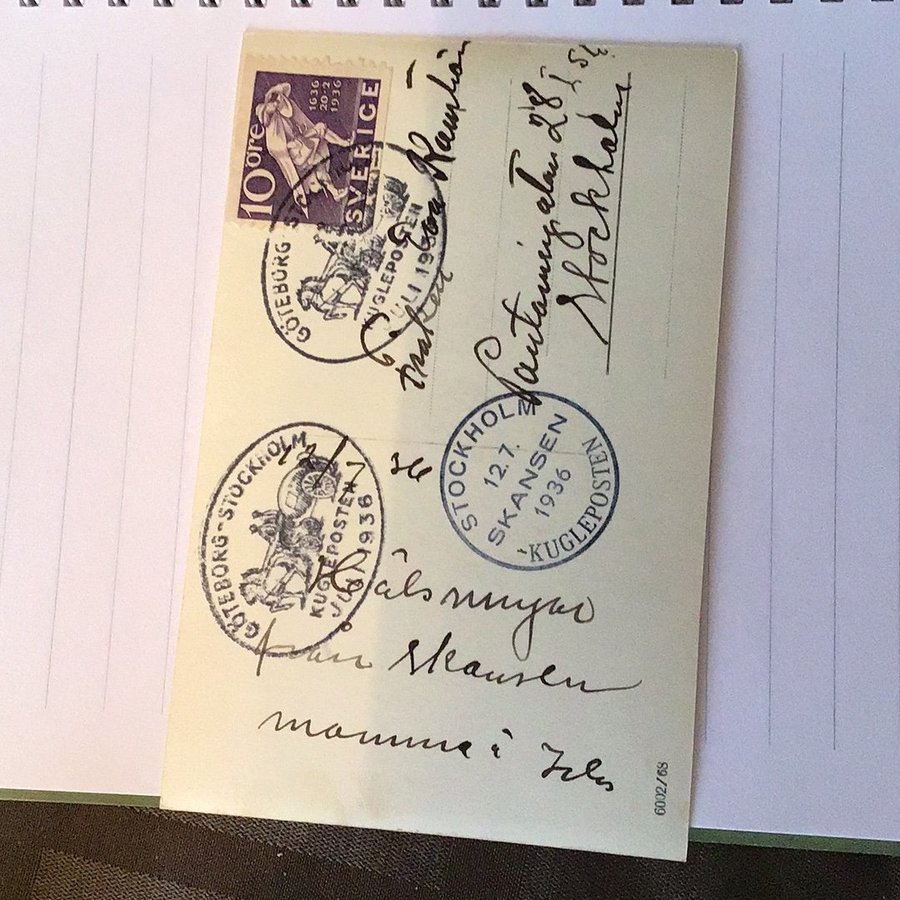 12/7 36
Hälsningar
från Skansen
mamma
GÖTEBORG-STOCKHOLM
KUGLEPOSTEN
JULI 1936
STOCKHOLM
12.7.
SKANSEN
1936
KUGLEPOSTEN
10 öre
1636
20·2
1936
SVERIGE
GÖTEBORG-S
KUGLEPOSTEN
JULI 19
Fröken
28
Stockholm
6002/68